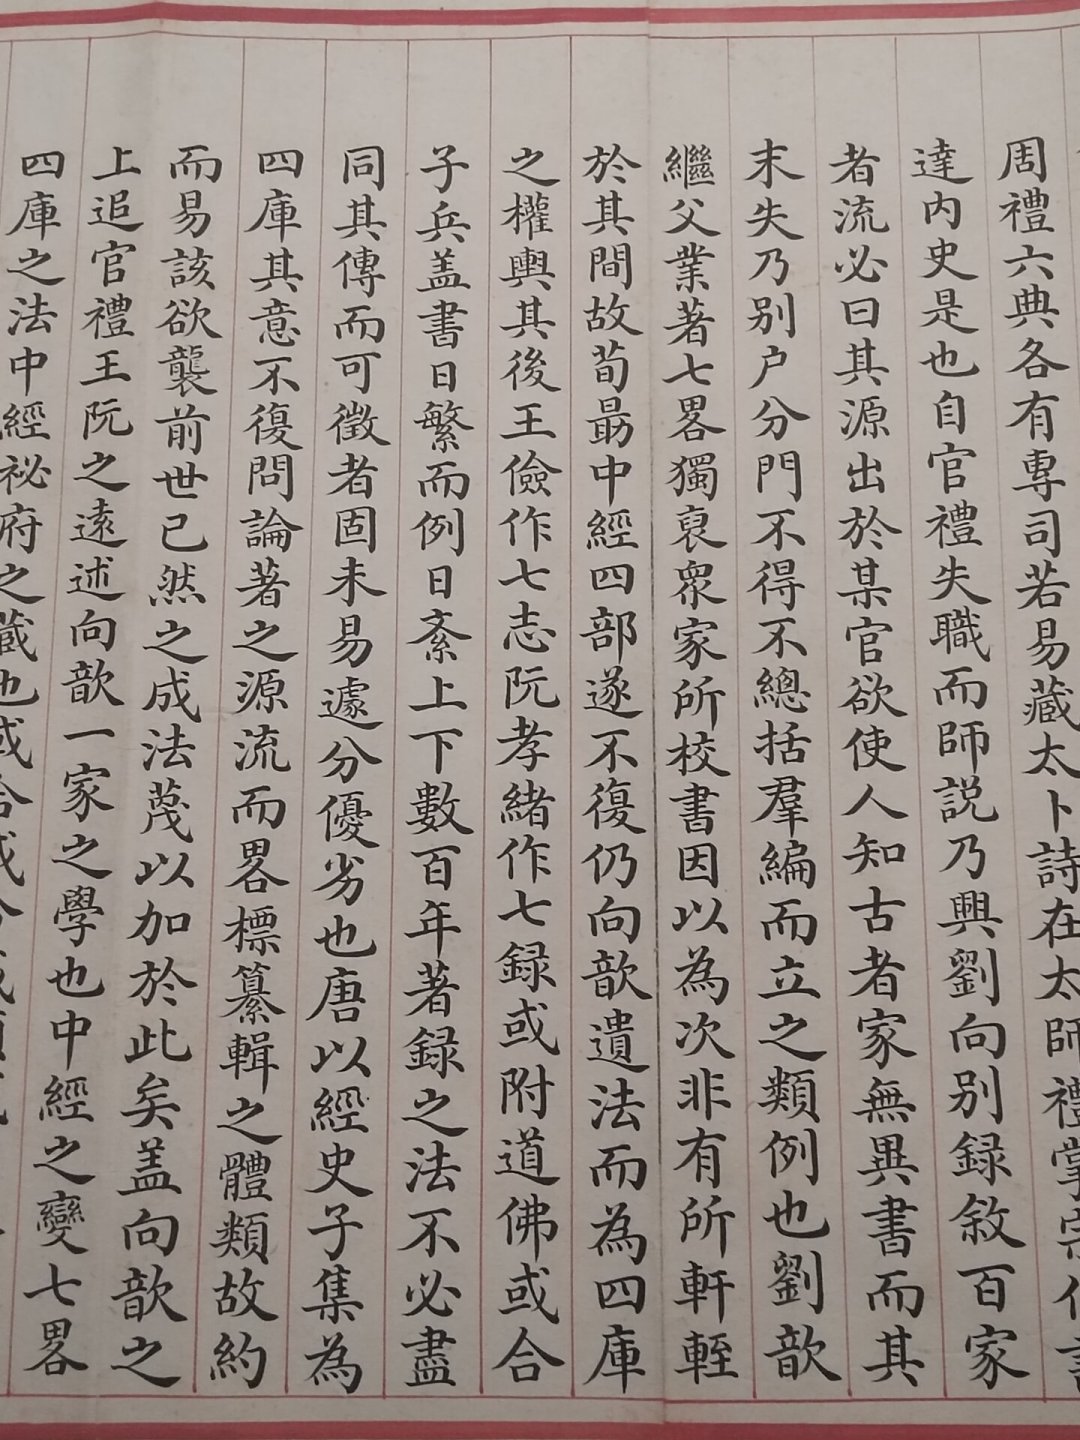 周禮六典各有專司若易藏太卜詩在太師禮掌宗伯
達內史是也自官禮失職而師説乃興劉向別録敘百家
者流必曰其源出於某官欲使人知古者家無異書而其
末失乃別户分門不得不總括羣編而立之類例也劉歆
繼父業著七畧獨裒衆家所校書因以為次非有所軒輊
於其間故荀勗中經四部遂不復仍向歆遺法而為四庫
之權輿其後王儉作七志阮孝緒作七録或附道佛或合
子兵盖書日繁而例日紊上下數百年著録之法不必盡
同其傳而可徵者固未易遽分優劣也唐以經史子集為
四庫其意不復問論著之源流而畧標纂輯之體類故約
而易該欲襲前世已然之成法蔑以加於此矣盖向歆之
上追官禮王阮之遠述向歆一家之學也中經之變七畧
四庫之法中經祕府之藏也或合或分或